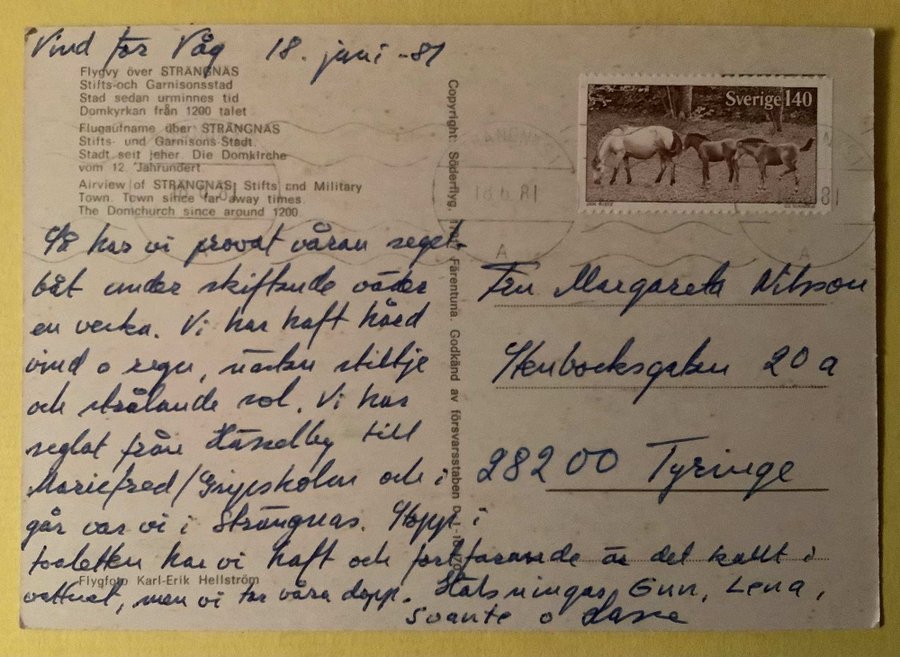 Vind för Våg 18. juni -81
Flygvy över STRÄNGNÄS
Stifts-och Garnisonsstad
Stad sedan urminnes tid
Domkyrkan från 1200 talet
Flugaufname über STRÄNGNÄS
Stifts- und Garnisons-Stadt.
Stadt seit jeher. Die Domkirche
vom 12. Jahrundert
Airview of STRÄNGNÄS: Stifts and Military
Town. Town since far away times.
The Domchurch since around 1200.
har vi provat våran segel-
båt under skiftande väder
en vecka. Vi har haft hård
vind o regn, nästan stiltje
och strålande sol. Vi har
seglat från Hässelby till
Mariefred/Gripsholm och i
går var vi i Strängnäs. Stopp i
toaletten har vi haft och fortfarande är det kallt i
vattnet, men vi tar våra dopp. Hälsningar Gun, Lena,
Svante o Lasse
Flygfoto Karl-Erik Hellström
Copyright: Söderflyg, Färentuna. Godkänd av försvarsstaben
Sverige 140
STRÄNGNÄS
18.6.81
A
Fru Margareta Nilsson
Stenbocksgatan 20 a
282 00 Tyringe